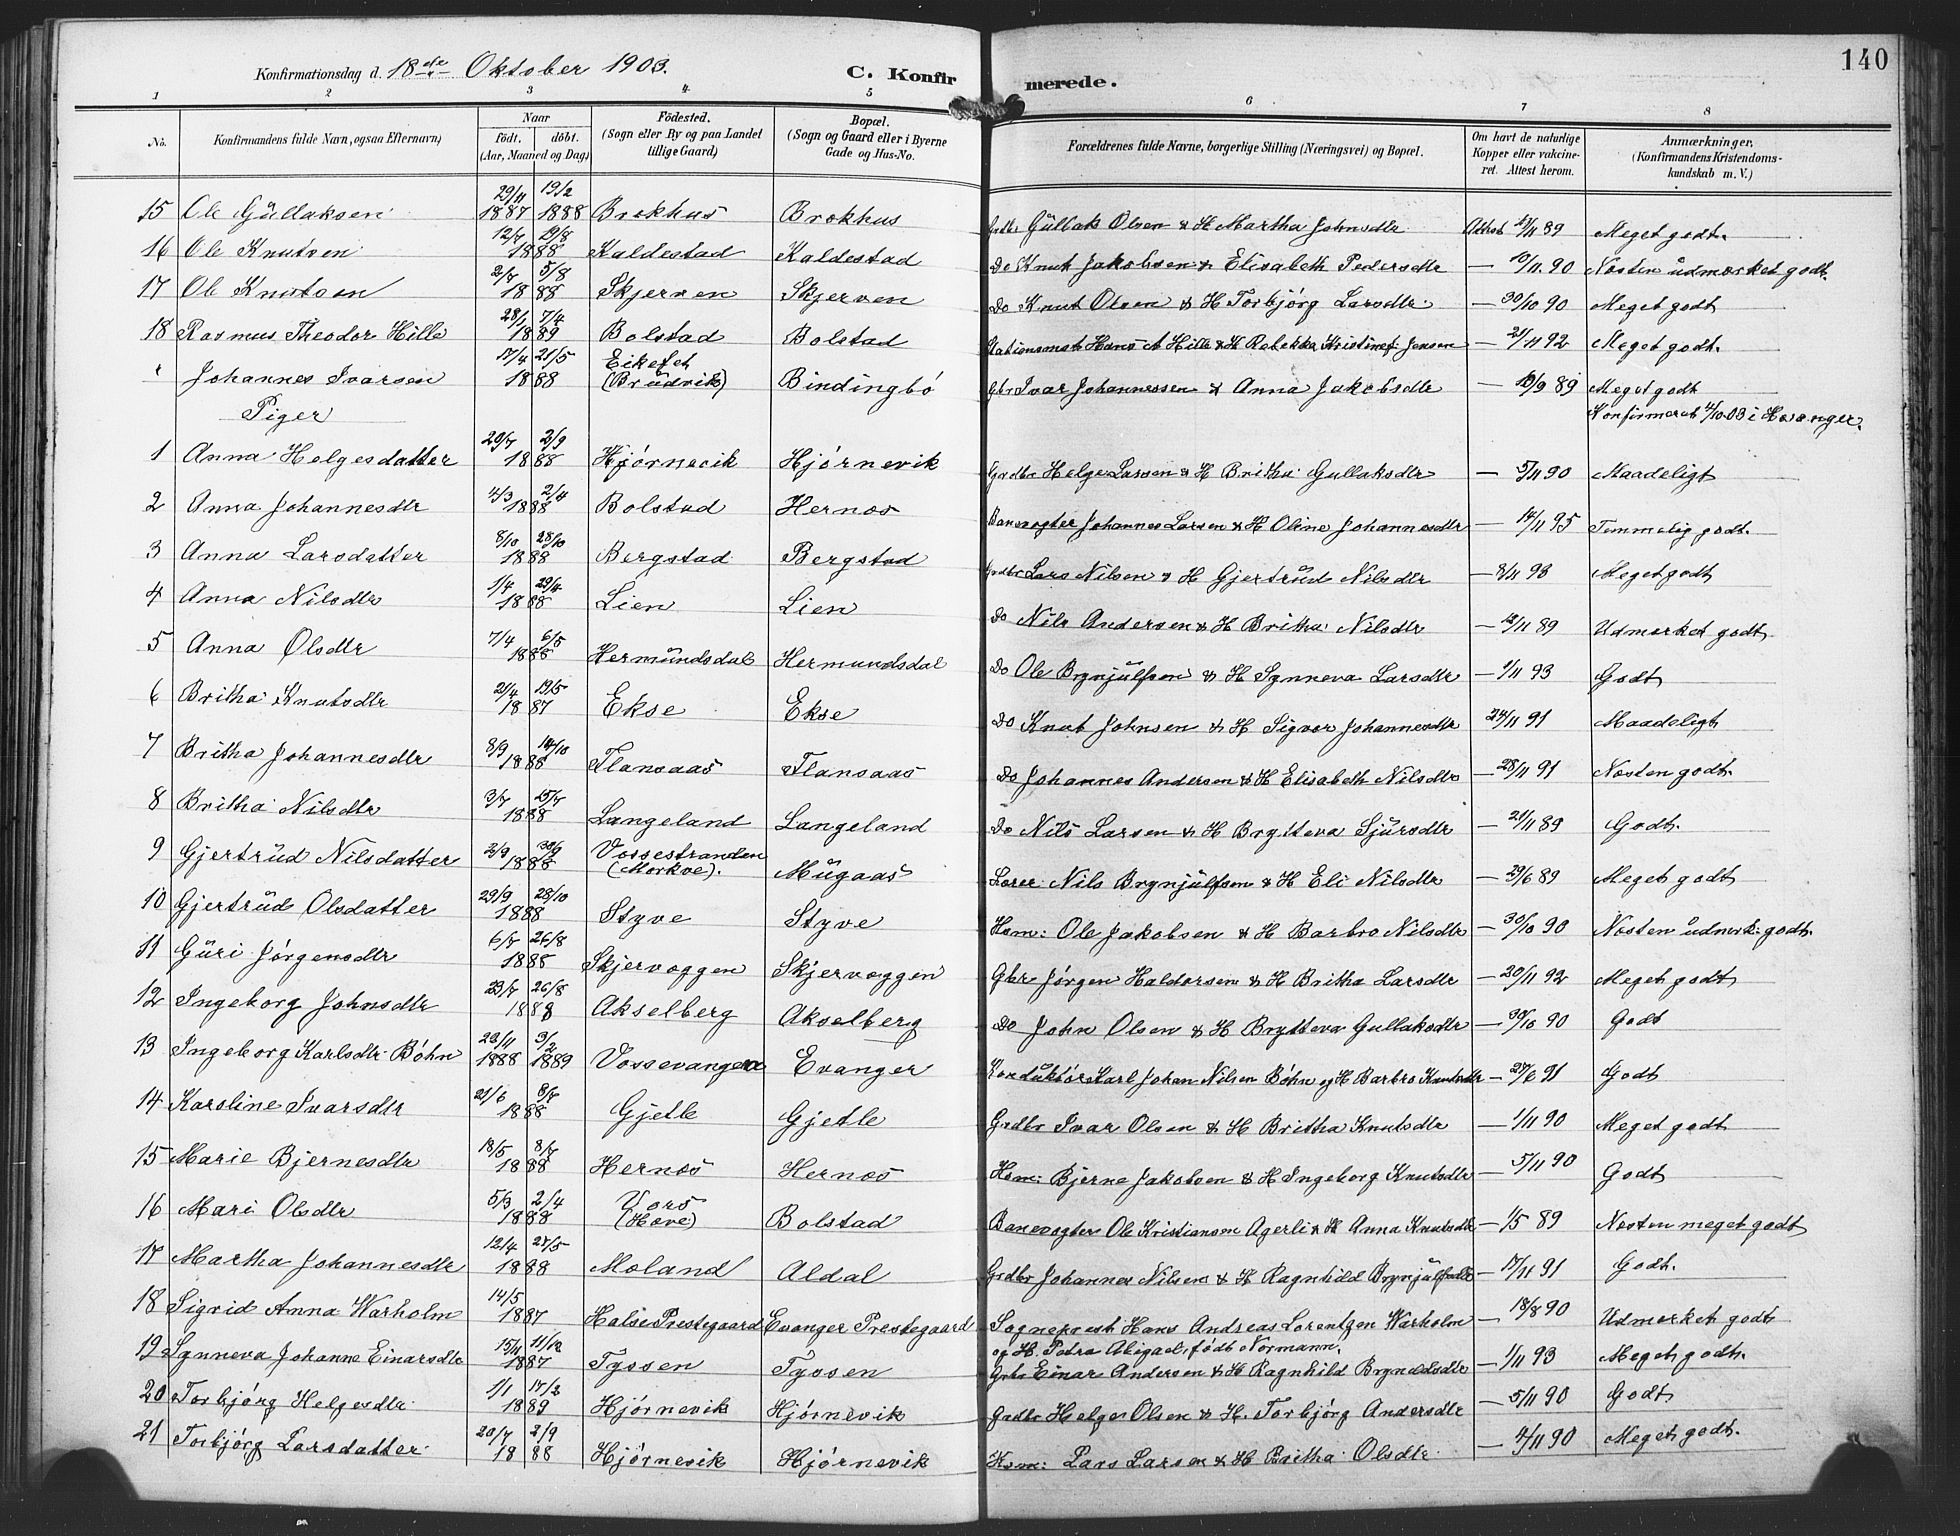 140
Konfirmationsdag d. 18de Oktober 1903. C. Konfirmerede.
1 2 3 4 5 6 7 8
No. Konfirmandens fulde Navn, ogsaa Efternavn) Naar født. døbt. (Aar, Maaned og Dag) Fødested. (Sogn eller By og paa Landet tillige Gaard) Bopæl. (Sogn og Gaard eller i Byerne Gade og Hus-No. Forældrenes fulde Navne, borgerlige Stilling (Næringsvei) og Bopæl. Om havt de naturlige Kopper eller vakcineret. Attest herom. Anmærkninger. (Konfirmandens Kristendomskundskab m. V.)
15 Ole Gullaksen 29/11 1887 19/2 1888 Brekhus Brekhus Grdbr Gullak Olsen & H Martha Johnsdtr Attest 13/11 89 Meget godt.
16 Ole Knutsen 12/7 19/8 1888 Kaldestad Kaldestad Do Knut Jakobsen & Elisabeth Pedersdtr — 10/11 90 Næsten udmærket godt.
17 Ole Knutsen 2/7 5/8 1888 Skjerven Skjerven Do Knut Olsen & H Torbjørg Larsdtr — 30/10 90 Meget godt
18 Rasmus Theodor Hille 28/1 7/4 1889 Bolstad Bolstad Stationsmst Hans A Hille & H Rebekka Kristine f Jensen — 21/11 92 Meget godt.
" Johannes Ivarsen 17/4 21/5 1888 Eikefet (Brudvik) Bindingbø Gbr Ivar Johannessen & Anna Jakobsdtr — 13/9 89 Meget godt
Konfirmeret 4/10 03 i Hosanger.
Piger
1 Anna Helgesdatter 29/7 2/9 1888 Hjørnevik Hjørnevik Grdbr Helge Larsen & H Britha Gullaksdtr — 5/11 90 Maadeligt
2 Anna Johannesdtr 4/3 2/4 1888 Bolstad Hernes Banevogter Johannes Larsen & H Oline Johannesdtr — 14/11 95 Temmelig godt.
3 Anna Larsdatter 8/10 28/10 1888 Bergstad Bergstad Grdbr Lars Nilsen & H Gjertrud Nilsdtr — 8/11 93 Meget godt
4 Anna Nilsdtr 1/4 29/4 1888 Lien Lien Do Nils Andersen & H Britha Nilsdtr — 12/11 89 Udmerket godt
5 Anna Olsdtr 7/4 6/5 1888 Hermundsdal Hermundsdal Do Ole Brynjulfsen & H Synneva Larsdtr — 1/11 93 Godt
6 Britha Knutsdtr 21/4 19/5 1887 Ekse Ekse Do Knut Johnsen & H Sigvor Johannesdtr 24/11 91 Maadeligt
7 Britha Johannesdtr 8/9 14/10 1888 Flansaas Flansaas Do Johannes Andersen & H Elisabeth Nilsdtr — 28/11 91 Næsten godt.
8 Britha Nilsdtr 3/7 25/7 1888 Langeland Langeland Do Nils Larsen & H Brytteva Sjursdtr — 21/11 89 Godt.
9 Gjertrud Nilsdatter 2/9 30/9 1888 Vossestranden (Mørkve). Mugaas Lærer Nils Brynjulfsen & H Eli Nilsdtr — 29/6 89 Meget godt
10 Gjertrud Olsdatter 29/9 28/10 1888 Styve Styve Hsm: Ole Jakobsen & H Barbro Nilsdtr — 30/10 90 Næsten udmerk: godt.
11 Guri Jørgensdtr 6/7 26/8 1888 Skjervoggen Skjervoggen Gbr Jørgen Haldorsen & H Britha Larsdtr — 20/11 92 Meget godt
12 Ingeborg Johnsdtr 23/7 26/8 1888 Akselberg Akselberg Do John Olsen & H Brytteva Gullaksdtr — 30/10 90 Godt
13 Ingeborg Karlsdtr Bøhn 23/11 1888 3/2 1889 Vossevangen Evanger Konduktør Karl Johan Nilsen Bøhn og H Barbro Knutsdtr — 27/6 91 Godt
14 Karoline Ivarsdtr 21/6 8/7 1888 Gjetle Gjetle Grdbr Ivar Olsen & H Britha Knutsdtr — 1/11 90 Meget godt
15 Marie Bjernesdtr 18/5 8/7 1888 Hernes Hernes Hsm: Bjerne Jakobsen & H Ingeborg Knutsdtr — 5/11 90 Godt
16 Mari Olsdtr 5/3 2/4 1888 Vors (Hove) Bolstad Banevogter Ole Kristiansen Agerli & H Anna Knutsdtr — 1/5 89 Næsten meget godt
17 Martha Johannesdtr 12/4 27/5 1888 Moland Aldal Grdbr Johannes Nilsen & H Ragnhild Brynjulfsdtr — 17/11 91 Godt.
18 Sigrid Anna Warholm 14/5 1887 Halse Prestegaard Evanger Prestegaard Sogneprest Hans Andreas Lorentzen Warholm — 18/8 90 Udmerket godt
og H. Petra Abigael, født Normann.
19 Synneva Johanne Einarsdtr 15/11 11/12 1887 Tyssen Tyssen Grbr Einar Andersen & H Ragnhild Bryn​dsdtr — 1/11 93 Meget godt.
20 Torbjørg Helgesdtr 1/1 17/2 1889 Hjørnevik Hjørnevik Grdbr Helge Olsen & H. Torbjørg Andersdtr — 5/11 90 Godt
21 Torbjørg Larsdatter 20/7 2/9 1888 Hjørnevik Hjørnevik Hsm: Lars Larsen & H Britha Olsdtr — 4/11 90 Meget godt.